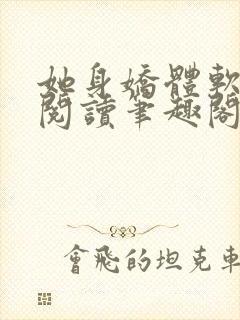 她身嬌體軟
閱讀筆趣閣
會飛的坦克車